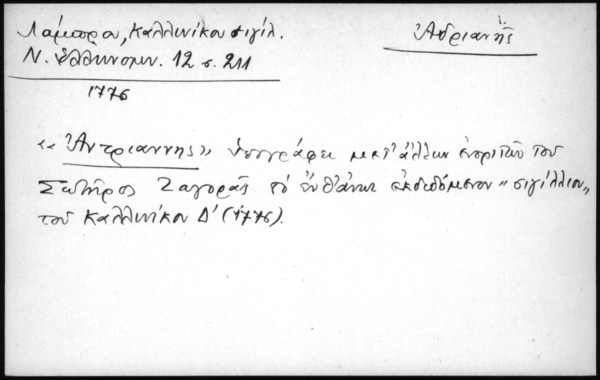 Λάμπρου, Καλλινίκου σιγίλ.
Ν. Ἑλληνομν. 12 σ. 211
1776
Ἀδριανῆς
«Ἀντριαννης» ὑπογράφει μετ' ἄλλων ἐνοριτῶν τοῦ
Σωτῆρος Ζαγορᾶς τὸ ἐνθ' ἄνω ἐκδιδόμενον "σιγίλλιον"
τοῦ Καλλινίκου Δ' (1776).